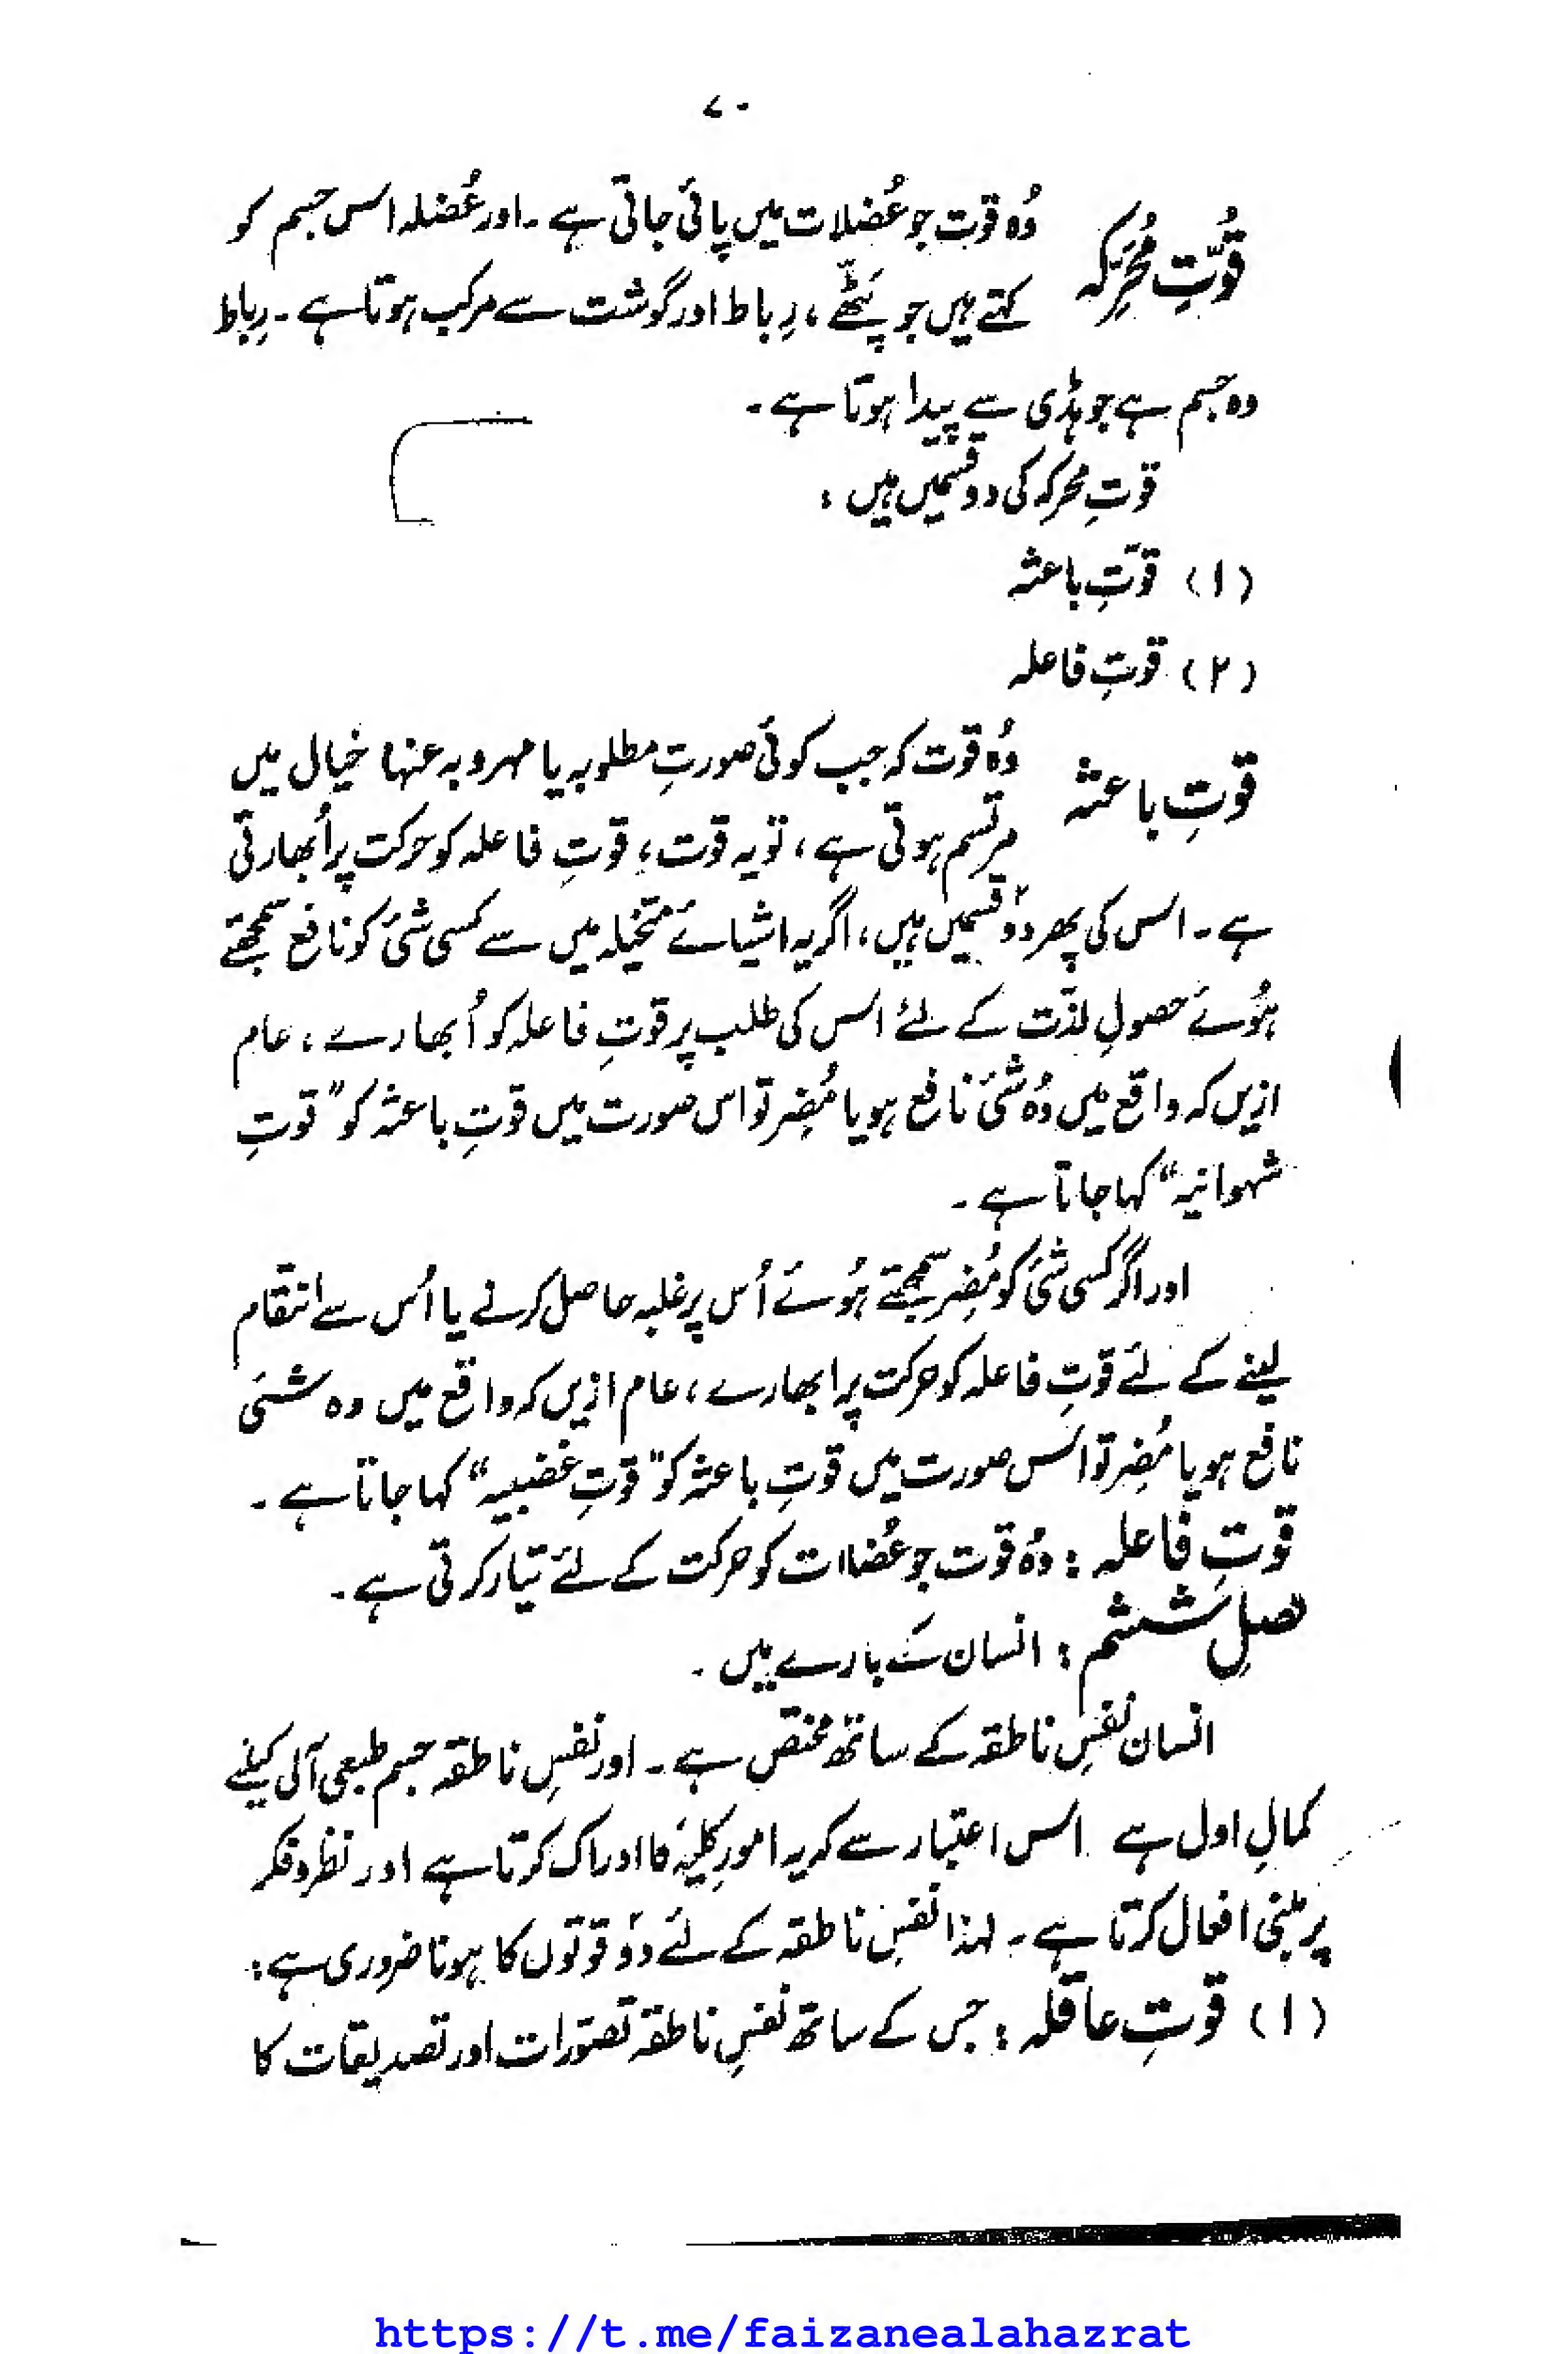 ۷۰
قُوّتِ مُحَرِّکہ
وُہ قوت جو عُضلات میں پائی جاتی ہے ۔ اور عُضلہ اس جسم کو
کہتے ہیں جو پَٹھّے ، رِباط اور گوشت سے مرکب ہوتا ہے ۔ رِباط
وہ جسم ہے جو ہڈی سے پیدا ہوتا ہے ۔
قوتِ محرکہ کی دو قسمیں ہیں :
(۱) قوّتِ باعثہ
(۲) قوتِ فاعلہ
قوتِ باعثہ
وُہ قوت کہ جب کوئی صورتِ مطلوبہ یا مہروبہ عنہا خیال میں
مرتسم ہوتی ہے ، تو یہ قوت ، قوتِ فاعلہ کو حرکت پر اُبھارتی
ہے ۔ اس کی پھر دو قسمیں ہیں ، اگر یہ اشیائے متخیلہ میں سے کسی شئ کو نافع سمجھتے
ہُوئے حصولِ لذّت کے لئے اس کی طلب پر قوتِ فاعلہ کو اُبھارے ، عام
ازیں کہ واقع میں وُہ شئ نافع ہو یا مُضِر تو اس صورت میں قوتِ باعثہ کو "قوتِ
شہوانیہ" کہا جاتا ہے ۔
اور اگر کسی شئ کو مُضِر سمجھتے ہُوئے اُس پر غلبہ حاصل کرنے یا اُس سے انتقام
لینے کے لئے قوتِ فاعلہ کو حرکت پر ابھارے ، عام ازیں کہ واقع میں وہ شئ
نافع ہو یا مُضِر تو اس صورت میں قوتِ باعثہ کو "قوتِ غضبیہ" کہا جاتا ہے ۔
قوتِ فاعلہ : وُہ قوت جو عُضلات کو حرکت کے لئے تیار کرتی ہے ۔
فصلِ ششم : انسان کے بارے میں ۔
انسان نفسِ ناطقہ کے ساتھ مختص ہے ۔ اور نفسِ ناطقہ جسم طبعی آلی کیلئے
کمالِ اول ہے اس اعتبار سے کہ یہ امورِ کلیہ کا ادراک کرتا ہے اور نظر و فکر
پر مبنی افعال کرتا ہے ۔ لہذا نفسِ ناطقہ کے لئے دو قوتوں کا ہونا ضروری ہے :
(۱) قوتِ عاقلہ : جس کے ساتھ نفسِ ناطقہ تصوّرات اور تصدیقات کا
https://t.me/faizanealahazrat